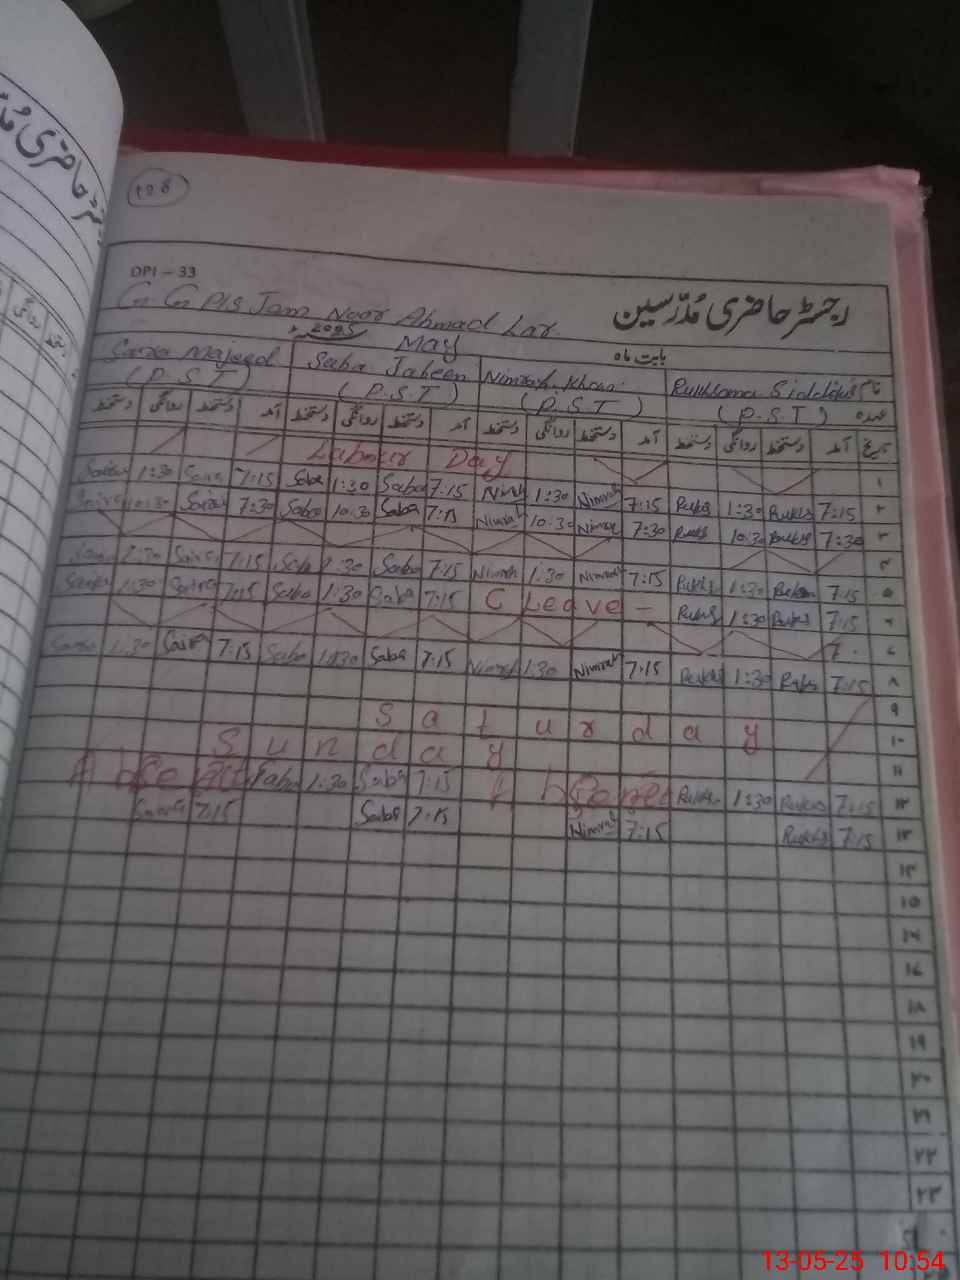 128
DPI - 33
رجسٹر حاضری مُدرّسین
G G P/S Jam Noor Ahmad Lar
2025
May
بابت ماہ
Saira Majeed Saba Jabeen Nimrah Khan Rukhsana نام
(P.S.T) (P.S.T) (P.S.T) (P.S.T) عہدہ
دستخط روانگی دستخط آمد دستخط روانگی دستخط آمد دستخط روانگی دستخط آمد دستخط روانگی دستخط آمد تاریخ
Labour Day ۱
Saira 1:30 Saira 7:15 Saba 1:30 Saba 7:15 Nimrah 1:30 Nimrah 7:15 Rukhs 1:30 Rukhs 7:15 ۲
Saira 10:30 Saira 7:30 Saba 10:30 Saba 7:15 Nimrah 10:30 Nimrah 7:30 Rukhs 10:30 Rukhs 7:30 ۳
۴
1:30 Saira 7:15 Saba 1:30 Saba 7:15 Nimrah 1:30 Nimrah 7:15 Rukhs 1:30 7:15 ۵
Saira 1:30 Saira 7:15 Saba 1:30 Saba 7:15 C Leave - Rukhs 1:30 Rukhs 7:15 ۶
7. ۷
Saira 1:30 Saira 7:15 Saba 1:30 Saba 7:15 Nimrah 1:30 Nimrah 7:15 Rukhs 1:30 Rukhs 7:15 ۸
۹
Saturday ۱۰
Sunday ۱۱
Absent Saba 1:30 Saba 7:15 Absent Rukhs 1:30 Rukhs 7:15 ۱۲
Saira 7:15 Saba 7:15 Nimrah 7:15 Rukhs 7:15 ۱۳
۱۴
۱۵
۱۶
۱۷
۱۸
۱۹
۲۰
۲۱
۲۲
۲۳
13-05-25 10:54